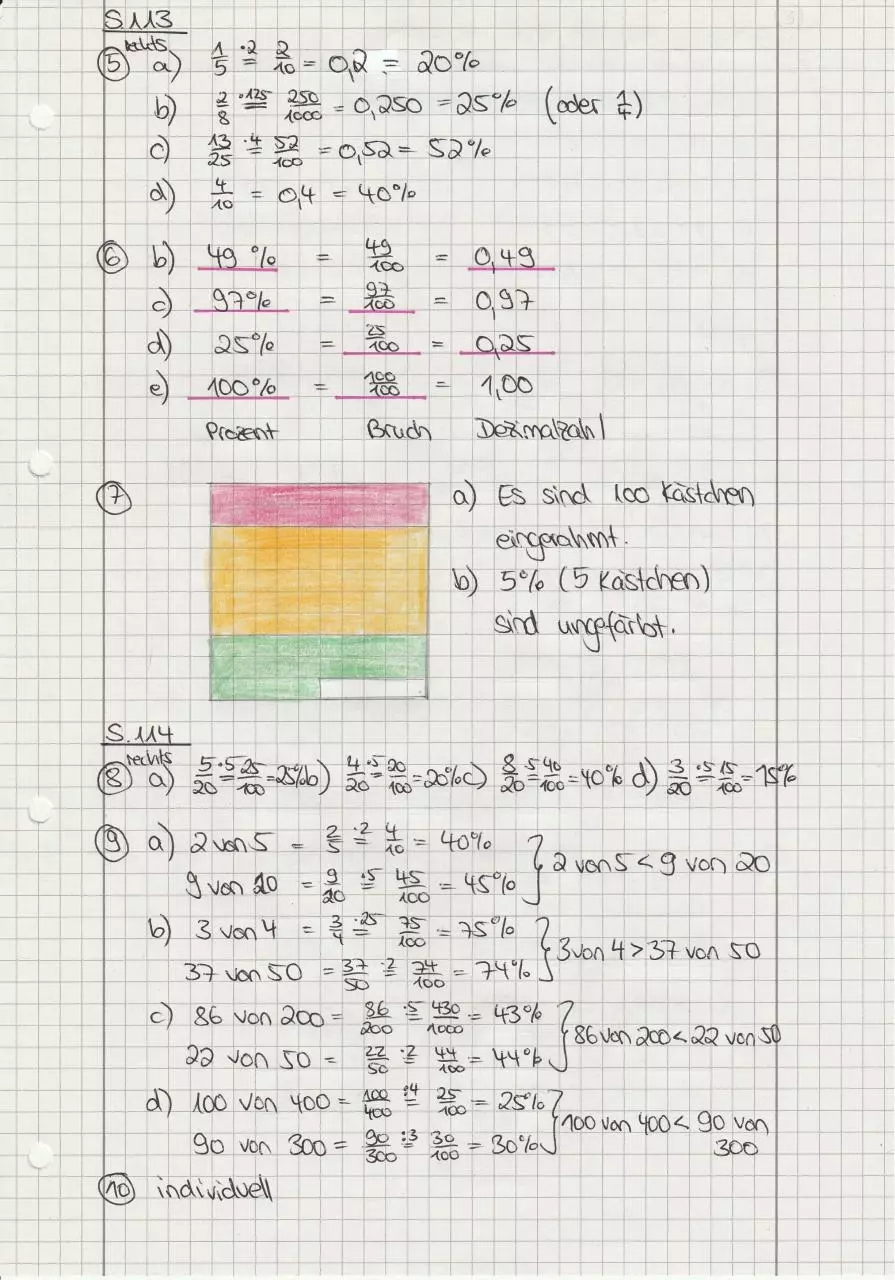 S.113
rechts
5 a) 1/5 ·2= 2/10 = 0,2 = 20%
b) 2/8 ·125= 250/1000 = 0,250 = 25% (oder 1/4)
c) 13/25 ·4= 52/100 = 0,52 = 52%
d) 4/10 = 0,4 = 40%
6 b) 49 % = 49/100 = 0,49
c) 97% = 97/100 = 0,97
d) 25% = 25/100 = 0,25
e) 100% = 100/100 = 1,00
Prozent Bruch Dezimalzahl
7 a) Es sind 100 Kästchen
eingerahmt.
b) 5% (5 Kästchen)
sind ungefärbt.
S.114
rechts
8 a) 5/20 ·5= 25/100 = 25% b) 4/20 ·5= 20/100 = 20% c) 8/20 ·5= 40/100 = 40% d) 3/20 ·5= 15/100 = 15%
9 a) 2 von 5 = 2/5 ·2= 4/10 = 40%
9 von 20 = 9/20 ·5= 45/100 = 45%
} 2 von 5 < 9 von 20
b) 3 von 4 = 3/4 ·25= 75/100 = 75%
37 von 50 = 37/50 ·2= 74/100 = 74%
} 3 von 4 > 37 von 50
c) 86 von 200 = 86/200 ·5= 430/1000 = 43%
22 von 50 = 22/50 ·2= 44/100 = 44%
} 86 von 200 < 22 von 50
d) 100 von 400 = 100/400 :4= 25/100 = 25%
90 von 300 = 90/300 :3= 30/100 = 30%
} 100 von 400 < 90 von
300
10 individuell